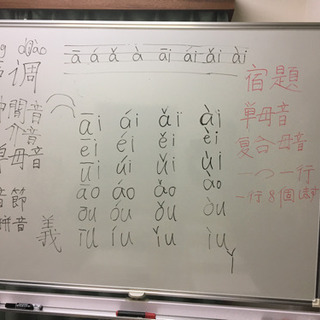 调
間音
介音
母音
音節
拼音
義
ā á ǎ à āi ái ǎi ài
āi ái ǎi ài
ēi éi ěi èi
ūi úi ǔi ùi
āo áo ǎo ào
ōu óu ǒu òu
īu íu ǐu ìu
宿題
単母音
复合母音
一つ一行
一行8個